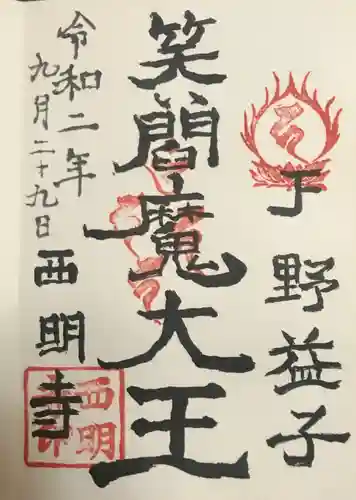 下野益子
笑閻魔大王
令和二年
九月二十九日
西明寺
西明
寺印